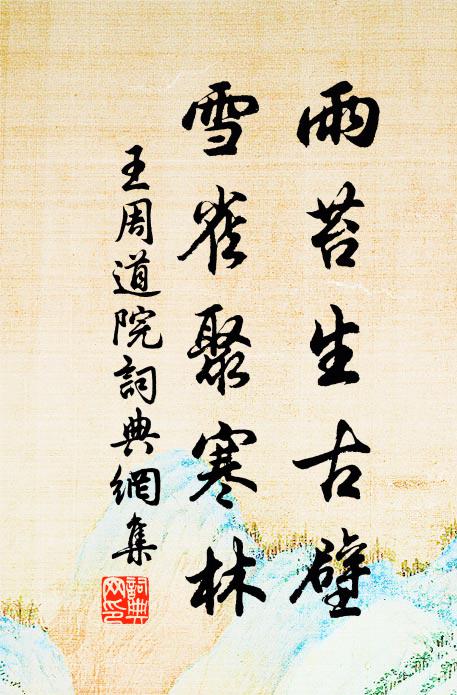 雨苔生古壁
雪雀聚寒林
王周道院詞典網集
詞典網印